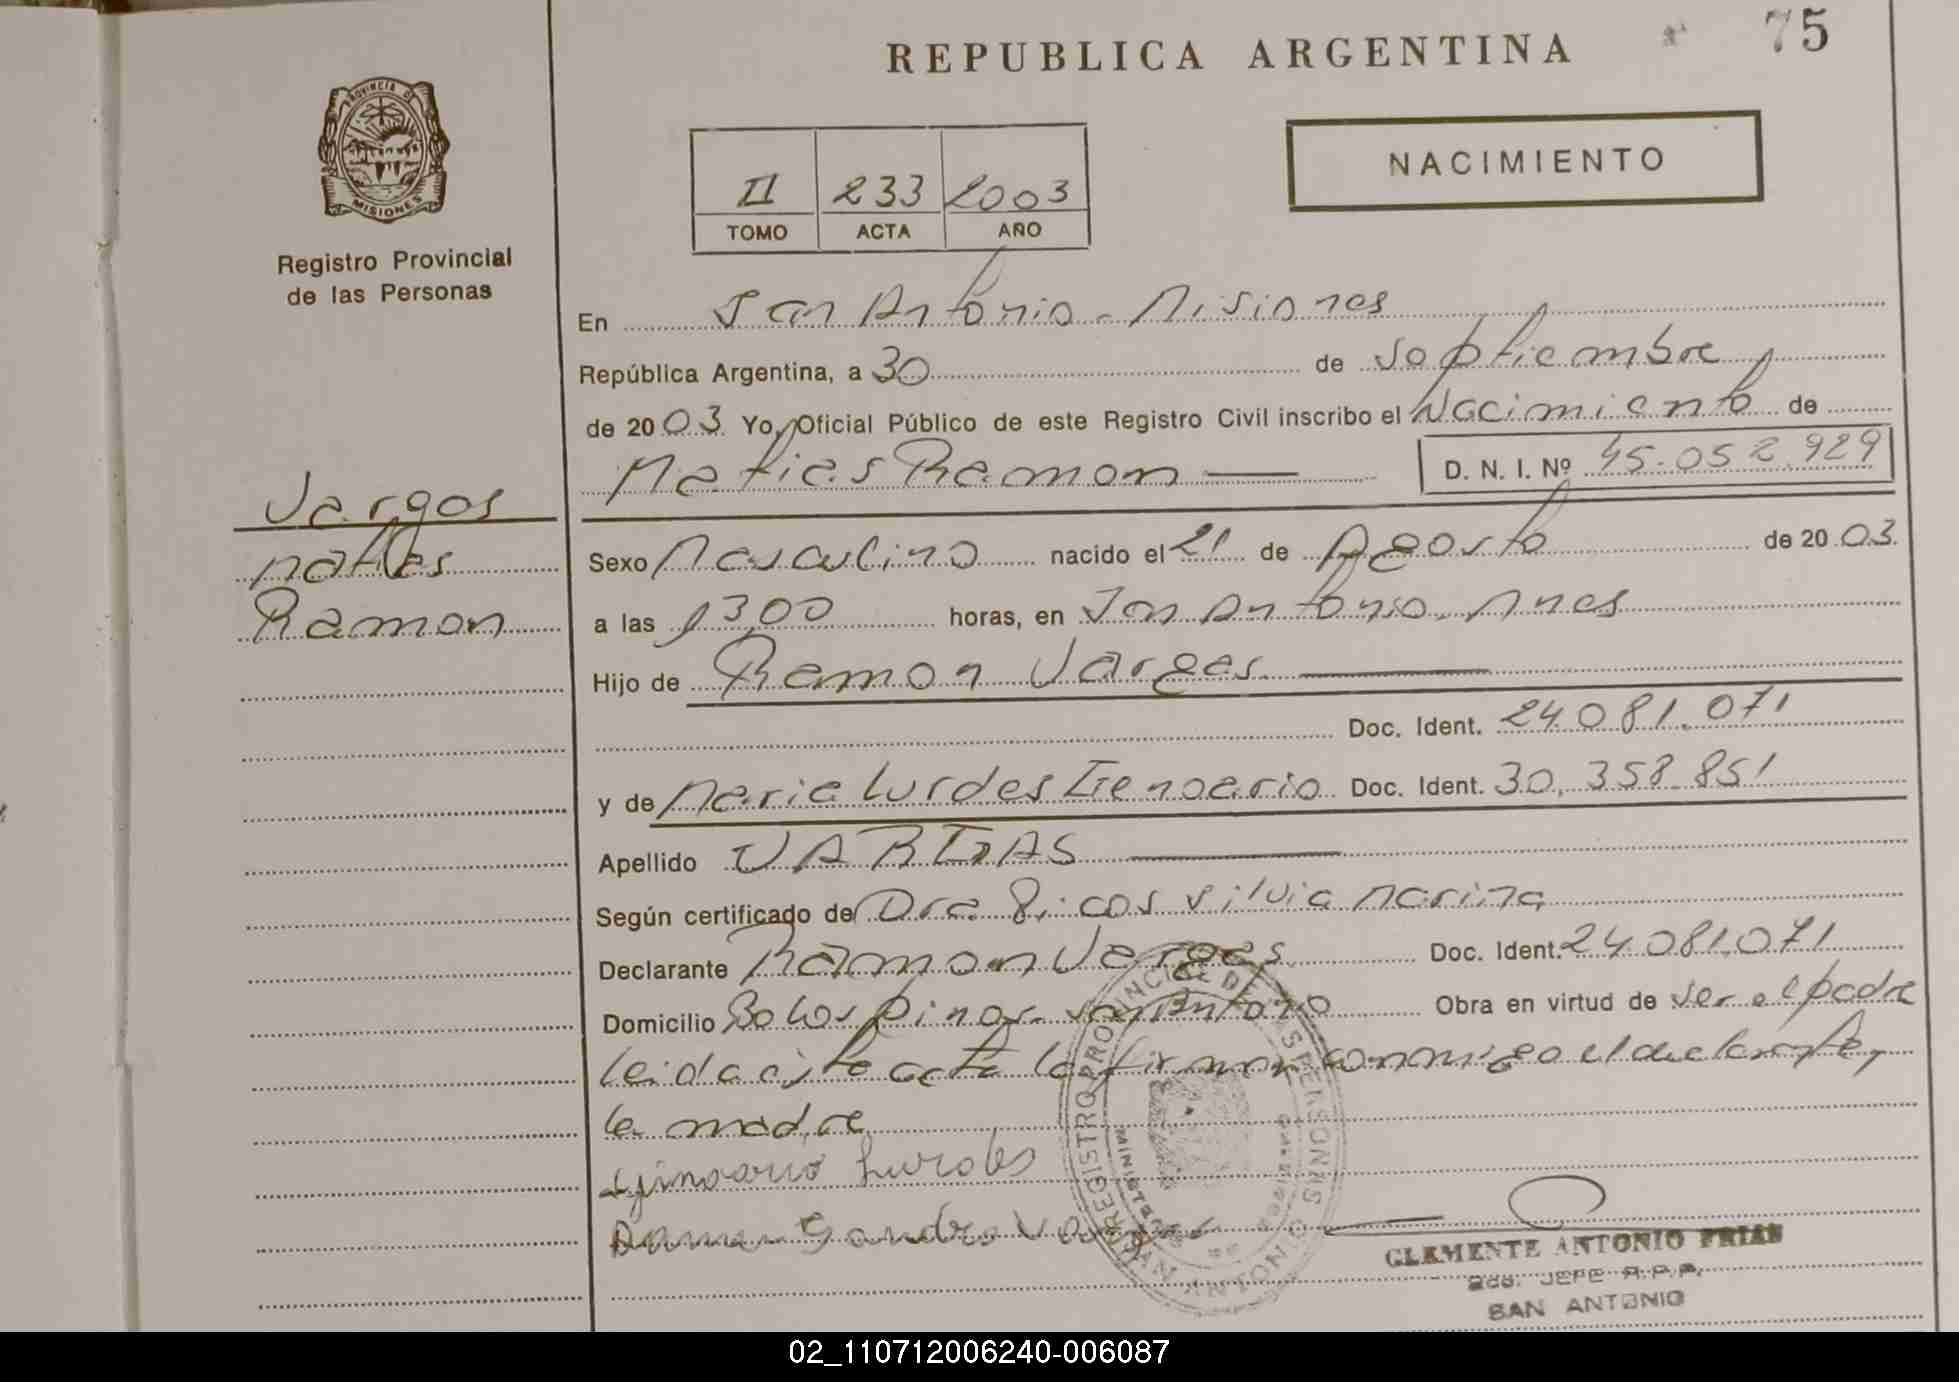 REPUBLICA ARGENTINA
75
PROVINCIA DE
MISIONES
Registro Provincial
de las Personas
II 233 2003
TOMO ACTA AÑO
NACIMIENTO
En San Antonio - Misiones
República Argentina, a 30 de Septiembre
de 2003 Yo, Oficial Público de este Registro Civil inscribo el Nacimiento de
Matias Ramon D. N. I. Nº 45.052.929
Vargas
Matias
Ramon
Sexo Masculino nacido el 21 de Agosto de 2003.
a las 13,00 horas, en San Antonio. Mnes
Hijo de Ramon Vargas
Doc. Ident. 24.081.071
y de Maria Lurdes Genoario Doc. Ident. 30.358.851
Apellido VARGAS
Según certificado de Dra. Silvia Marina
Declarante Ramon Vargas Doc. Ident. 24.081.071
Domicilio Pinos San Antonio Obra en virtud de ser el padre
Leida este acta la firman conmigo el declarante,
la madre
Lurdes
Sandro Vargas
REGISTRO PROVINCIAL DE LAS PERSONAS
SAN ANTONIO
CLEMENTE ANTONIO FRIAS
JEFE R.P.P.
SAN ANTONIO
02_110712006240-006087